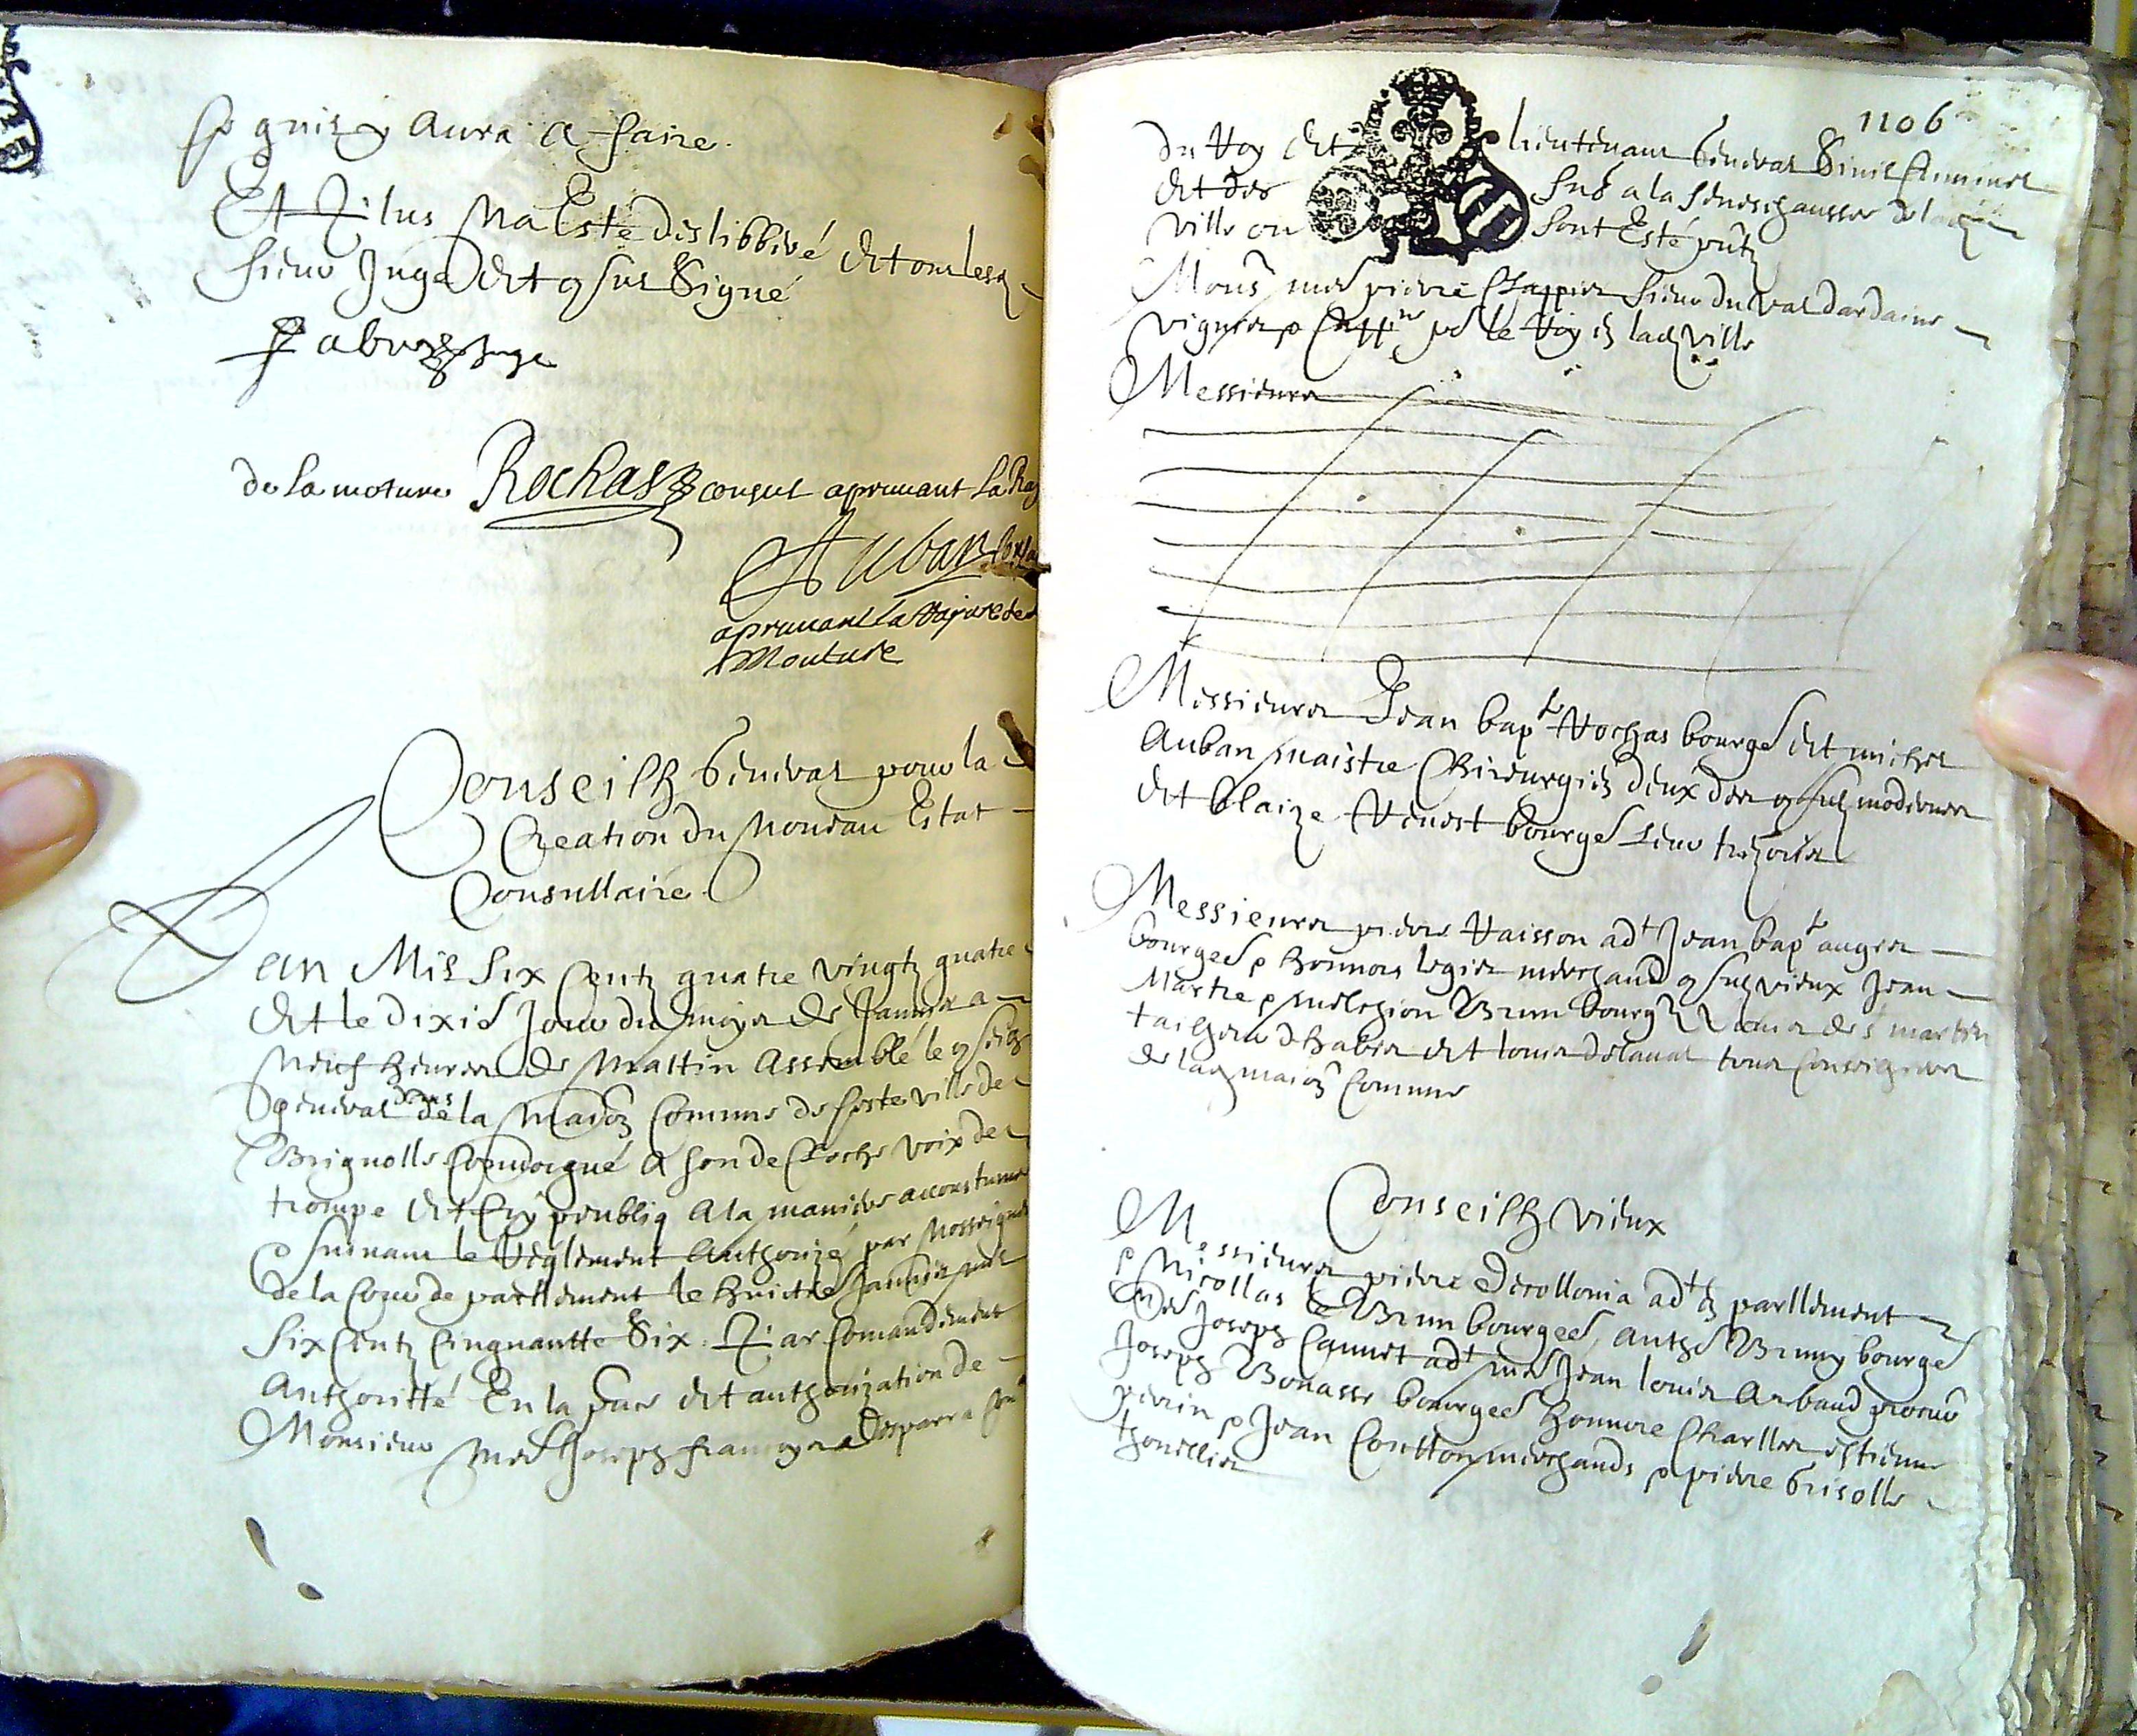 qu'il y aura a faire.
Et plus na este deslibbéré et ont lesq
sieur Juge et consuls signé
de la moture Rochas consul apruuant la Ray
Auban
apruuant la Rajure de
Mouture
Conseilh general pour la
Creation du Nouveau Estat
Consullaire.
L'an Mil six centz quatre vingtz quatre
et le dixie jour du moys de Januier a
neuf heures de Mattin Assemblé le conseilh
general dans la maison Comune de ceste ville de
Brignolle Convocqué a son de Cloche voix de
trompe et cry publiq a la maniere accoustumé
suivant le Reglement Authorizé par Nosseigneurs
de la Cour de parllement le huictie Januier mil
six centz cinquantte six Par Comandement
Authoritté En la pnce et authorization de
Monsieur me Joseph francoys Desparra
1106
du Roy et lieutenant general Civil Criminel
et des sub a la seneschaussee de lad
ville ou sont Esté pntz
Mons me pierre Clappier sieur du val dardaine
viguier Cappne po le Roy en lad ville
Messieurs
Messieurs Jean bapte Rochas bourge et michel
Auban maistre Chirurgien deux des consulz modernes
et blaize Venest bourge leur trezorier
Messieurs pierre Raisson adt Jean bapte auger
bourges honnore legier merchand consulz vieux Jean
Martre melchion Brun bourg de st martin
tailheur dhabis et louis delaval tous Conseigners
de lad maison Comune
Conseilh vieux
Messieurs pierre Decollonia adt en parllement
Nicollas le Brun bourgee, anthe Bruny bourge
me Joseph Cannet adt me Jean louis Arbaud procur
Joseph Bonasse bourgee honnore Charlles estienne
et Jean Coutton merchands pierre Grisolle